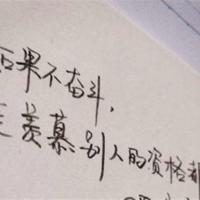 果不奋斗,
羡慕别人的资格都